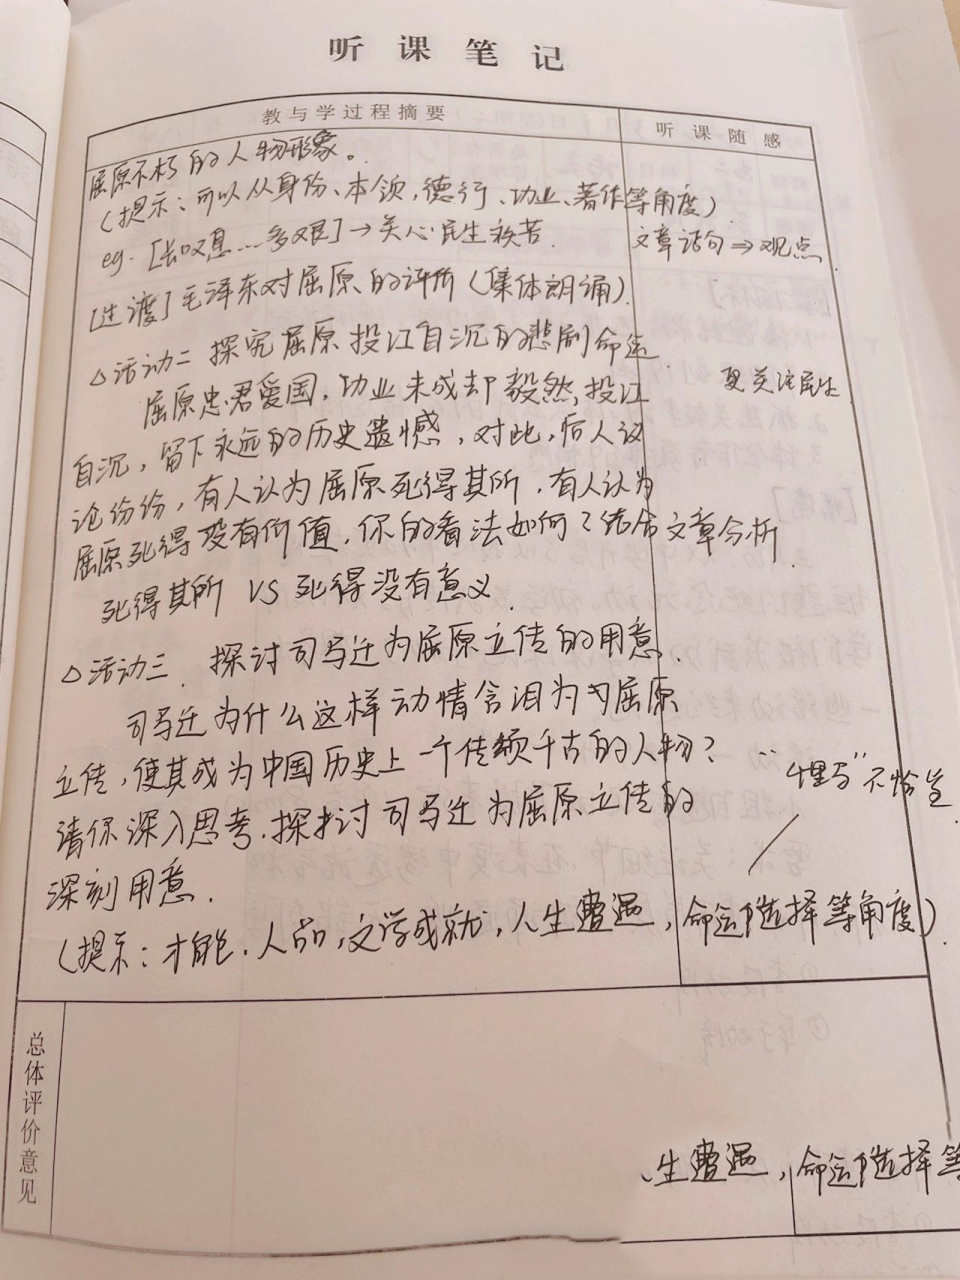 听课笔记
教与学过程摘要
听课随感
屈原不朽的人物形象。
(提示:可以从身份、本领,德行、功业、著作等角度)
eg. [长叹息……多艰]→关心民生疾苦.
文章语句⇒观点
[过渡]毛泽东对屈原的评价(集体朗诵).
△活动二 探究屈原投江自沉的悲剧命运
屈原忠君爱国,功业未成却毅然投江
更关注民生
自沉,留下永远的历史遗憾,对此,后人议
论份份,有人认为屈原死得其所,有人认为
屈原死得没有价值,你的看法如何?结合文章分析.
死得其所 VS 死得没有意义.
△活动三. 探讨司马迁为屈原立传的用意.
司马迁为什么这样动情含泪为屈原
立传,使其成为中国历史上一个传颂千古的人物?
“ ”不恰当
请你深入思考.探讨司马迁为屈原立传的
深刻用意.
(提示:才能.人品,文学成就,人生遭遇,命运选择等角度)
总体评价意见
生遭遇,命运选择等